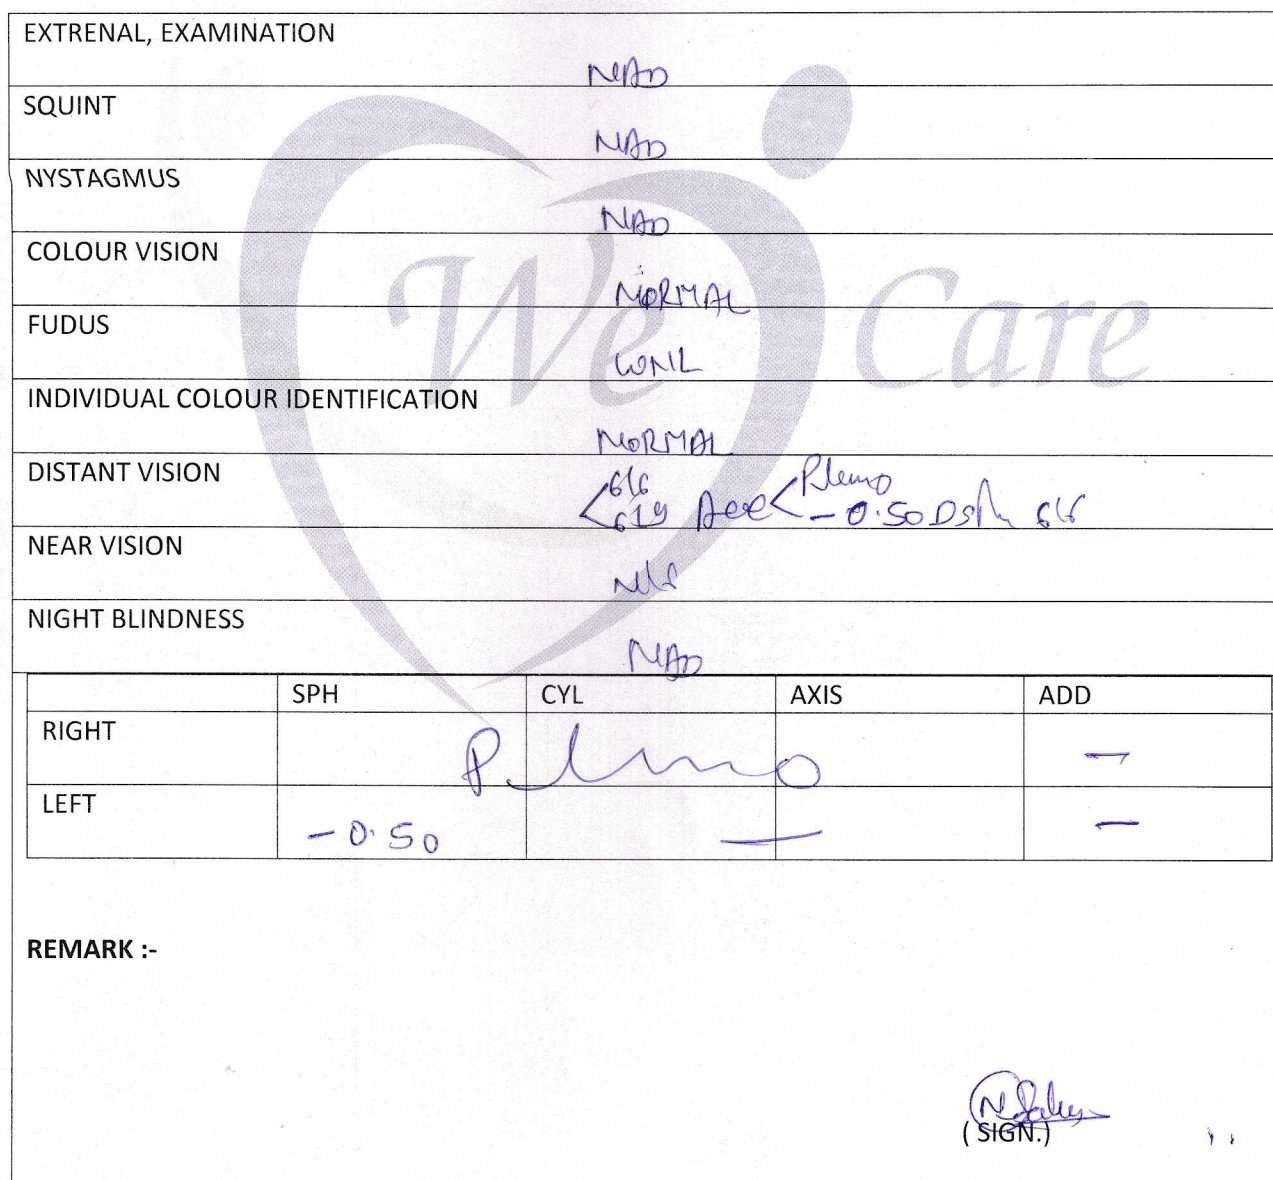 EXTRENAL, EXAMINATION
NAD
SQUINT
NAD
NYSTAGMUS
NAD
COLOUR VISION
NORMAL
FUDUS
WNL
We Care
INDIVIDUAL COLOUR IDENTIFICATION
NORMAL
DISTANT VISION
< 6/6 < Plano
6/9 - 0.50 Dsph 6/6
NEAR VISION
N/6
NIGHT BLINDNESS
NAD
SPH CYL AXIS ADD
RIGHT Plano -
LEFT - 0.50 - -
REMARK :-
( SIGN.)